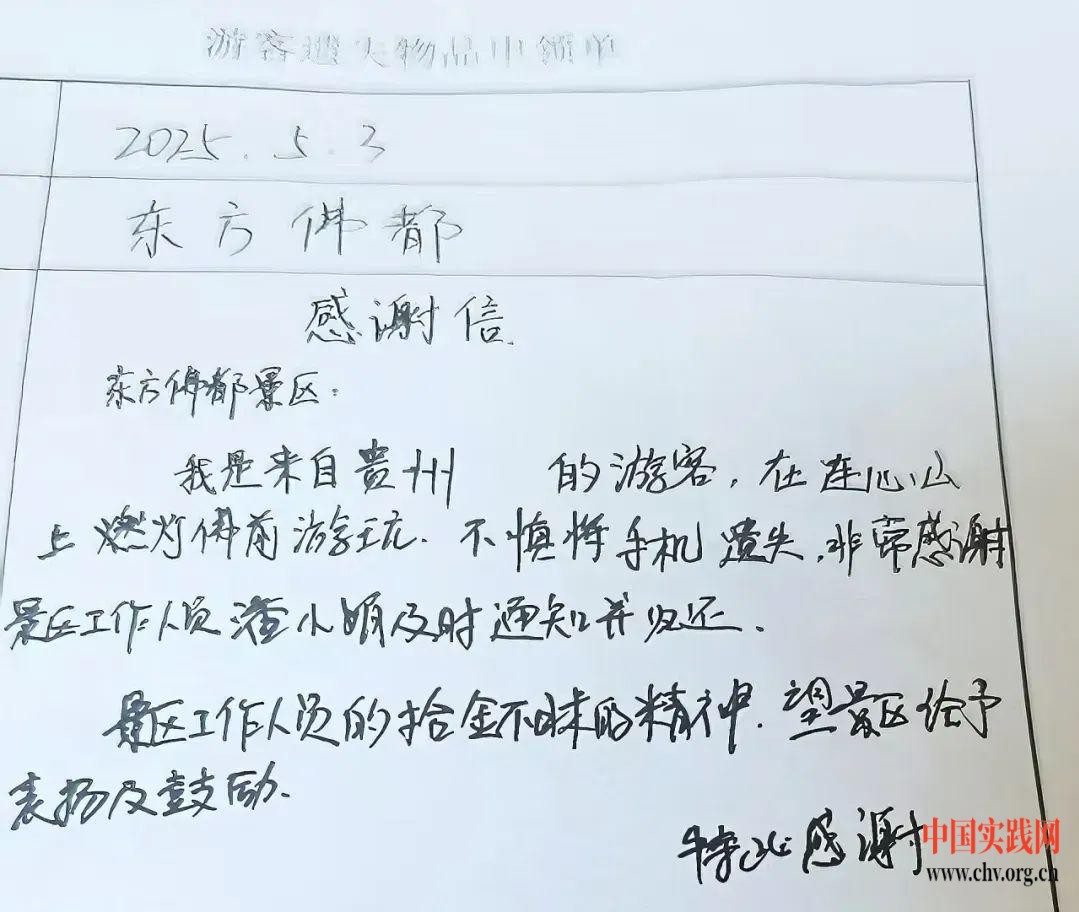 游客遗失物品申领单
2025.5.3
东方佛都
感谢信.
东方佛都景区：
我是来自贵州 的游客，在连心山
上燃灯佛前游玩.不慎将手机遗失，非常感谢
景区工作人员潘小娟及时通知并归还.
景区工作人员的拾金不昧的精神.望景区给予
表扬及鼓励.
特此感谢
中国实践网
www.chv.org.cn